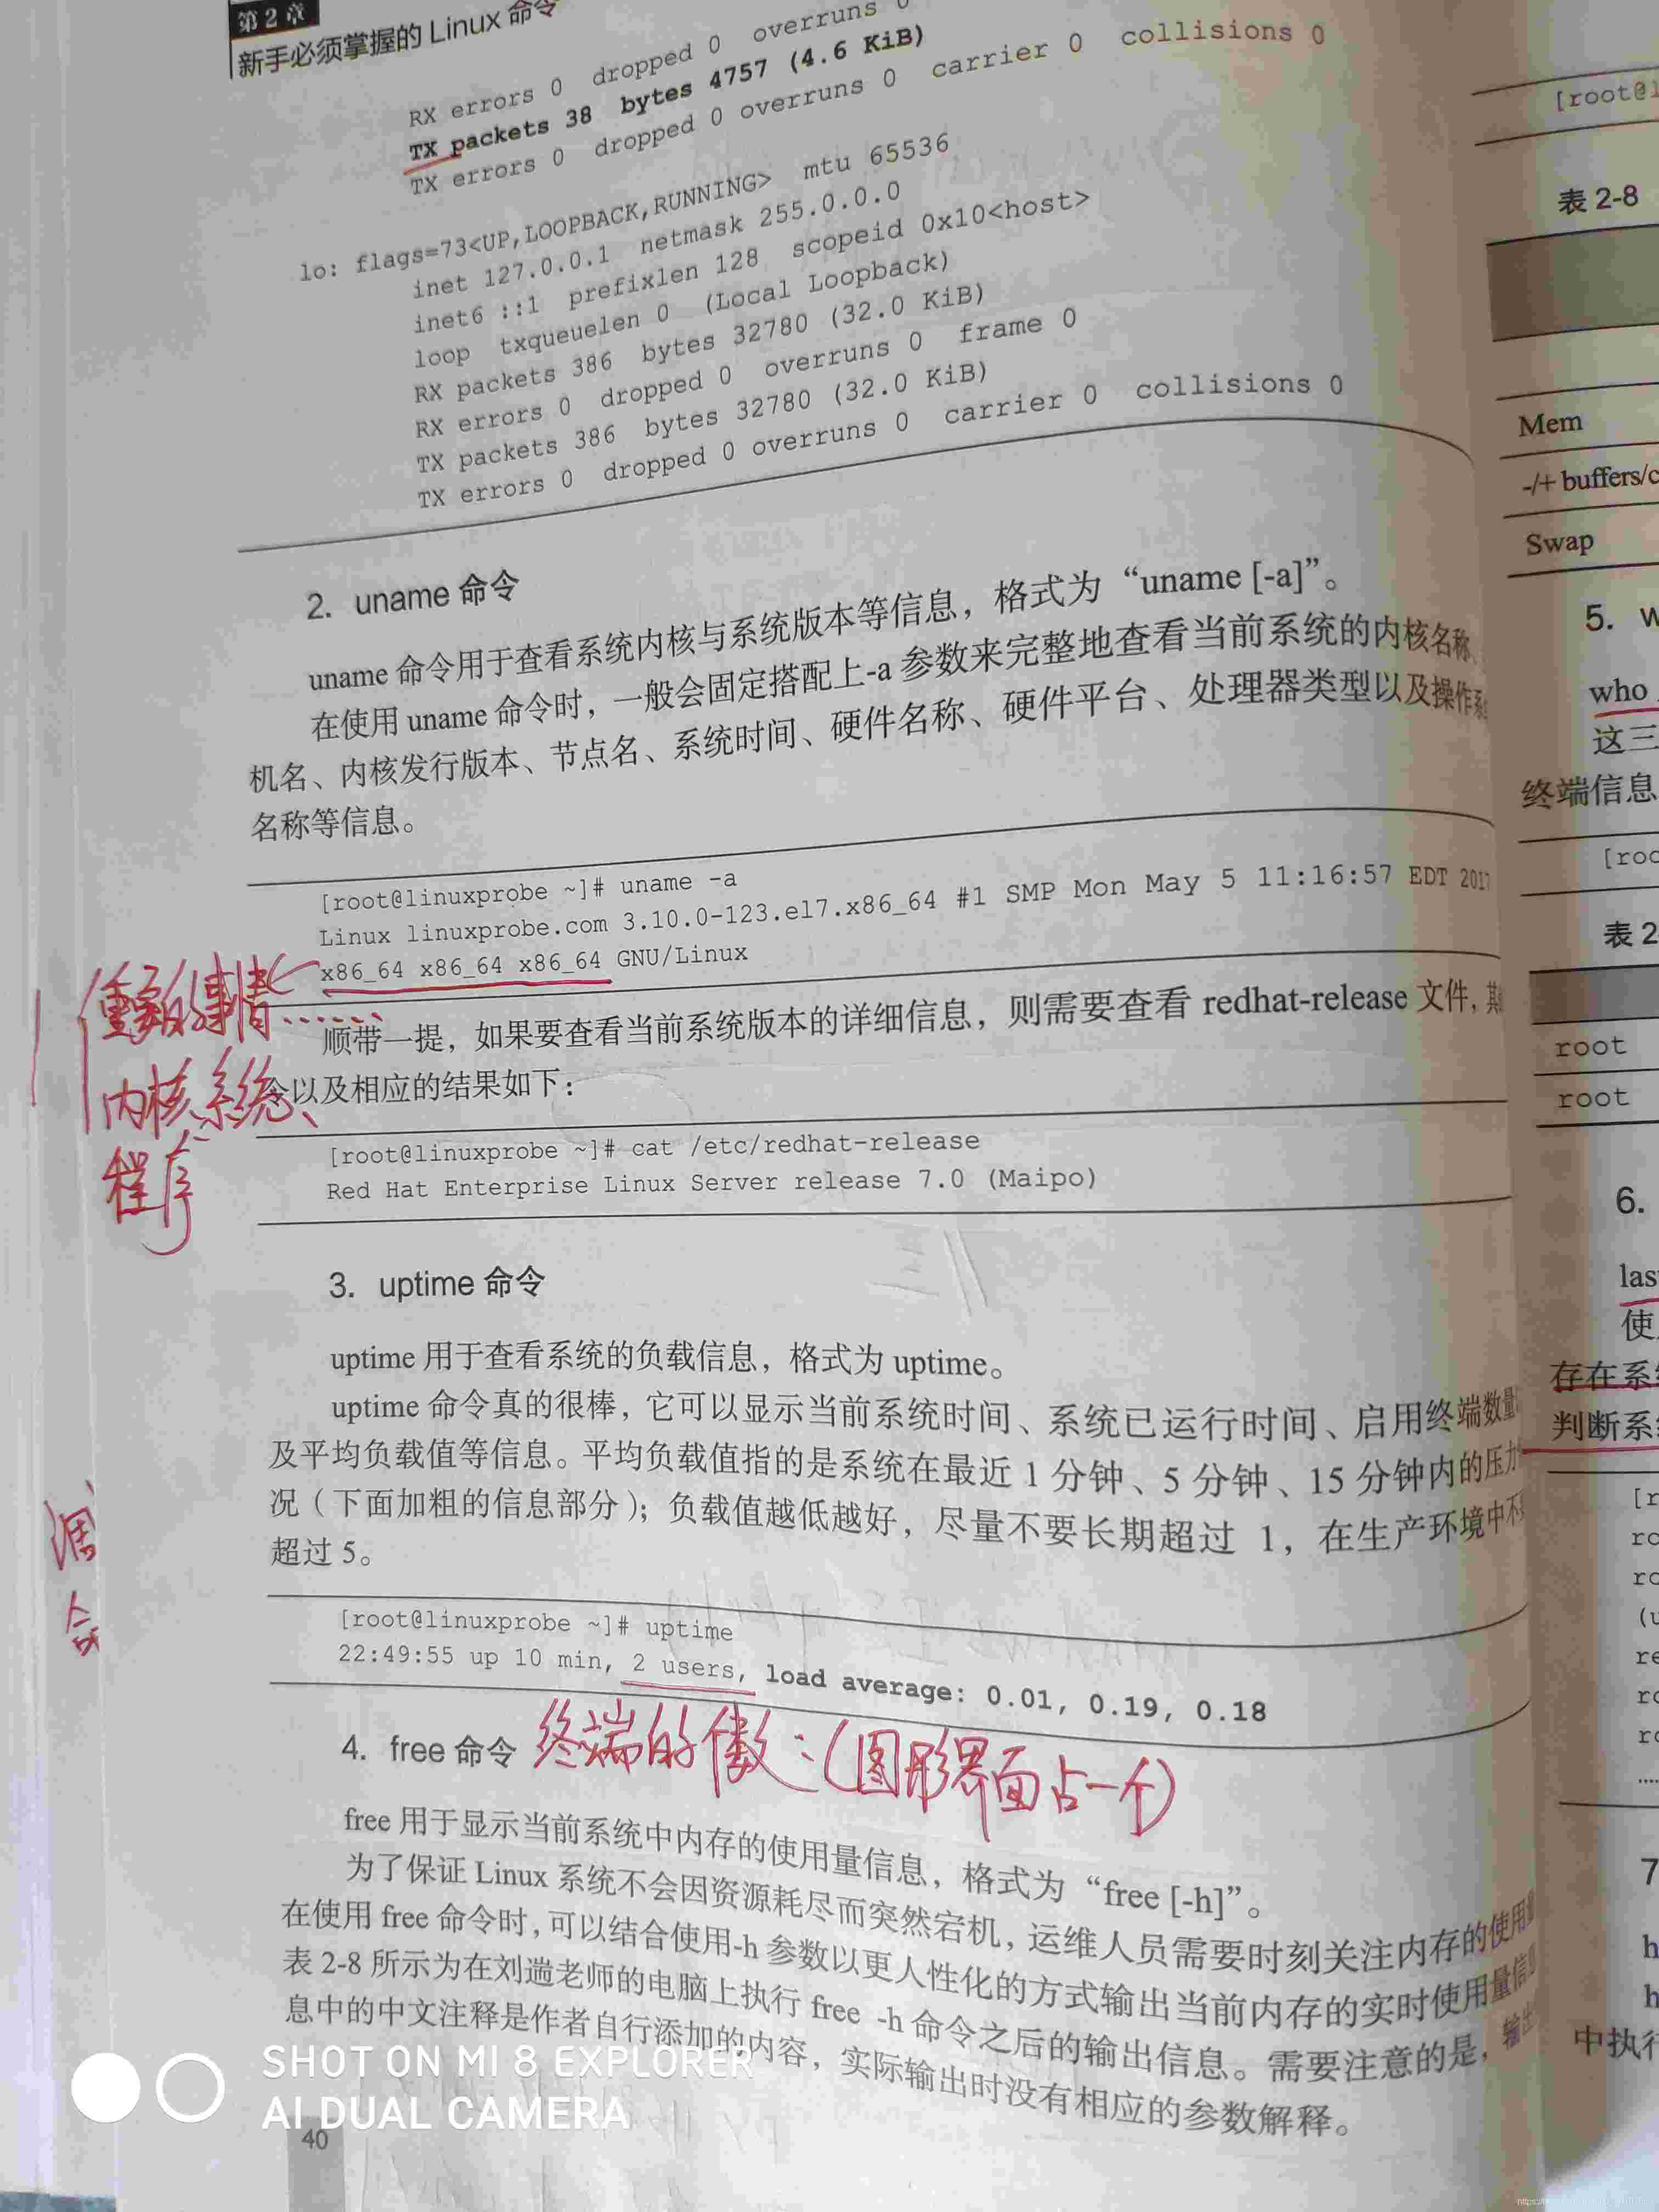 第 2 章
新手必须掌握的 Linux 命令
RX errors 0 dropped 0 overruns 0
TX packets 38 bytes 4757 (4.6 KiB)
TX errors 0 dropped 0 overruns 0 carrier 0 collisions 0
lo: flags=73<UP,LOOPBACK,RUNNING> mtu 65536
inet 127.0.0.1 netmask 255.0.0.0
inet6 ::1 prefixlen 128 scopeid 0x10<host>
loop txqueuelen 0 (Local Loopback)
RX packets 386 bytes 32780 (32.0 KiB)
RX errors 0 dropped 0 overruns 0 frame 0
TX packets 386 bytes 32780 (32.0 KiB)
TX errors 0 dropped 0 overruns 0 carrier 0 collisions 0
2. uname 命令
uname 命令用于查看系统内核与系统版本等信息，格式为“uname [-a]”。
在使用 uname 命令时，一般会固定搭配上-a 参数来完整地查看当前系统的内核名称、
机名、内核发行版本、节点名、系统时间、硬件名称、硬件平台、处理器类型以及操作系
名称等信息。
[root@linuxprobe ~]# uname -a
Linux linuxprobe.com 3.10.0-123.el7.x86_64 #1 SMP Mon May 5 11:16:57 EDT 2017
x86_64 x86_64 x86_64 GNU/Linux
重要的事情……
内核、系统、
程序
顺带一提，如果要查看当前系统版本的详细信息，则需要查看 redhat-release 文件，其
令以及相应的结果如下：
[root@linuxprobe ~]# cat /etc/redhat-release
Red Hat Enterprise Linux Server release 7.0 (Maipo)
3. uptime 命令
uptime 用于查看系统的负载信息，格式为 uptime。
uptime 命令真的很棒，它可以显示当前系统时间、系统已运行时间、启用终端数量
及平均负载值等信息。平均负载值指的是系统在最近 1 分钟、5 分钟、15 分钟内的压力
况（下面加粗的信息部分）；负载值越低越好，尽量不要长期超过 1，在生产环境中不
超过 5。
[root@linuxprobe ~]# uptime
22:49:55 up 10 min, 2 users, load average: 0.01, 0.19, 0.18
4. free 命令
终端的数：（图形界面占一个）
free 用于显示当前系统中内存的使用量信息，格式为“free [-h]”。
为了保证 Linux 系统不会因资源耗尽而突然宕机，运维人员需要时刻关注内存的使用量
在使用 free 命令时，可以结合使用-h 参数以更人性化的方式输出当前内存的实时使用量信息
表 2-8 所示为在刘遄老师的电脑上执行 free -h 命令之后的输出信息。需要注意的是，输出
息中的中文注释是作者自行添加的内容，实际输出时没有相应的参数解释。
40
SHOT ON MI 8 EXPLORER
AI DUAL CAMERA
[root@l
表 2-8
Mem
-/+ buffers/c
Swap
5. w
who
这三
终端信息
[roo
表 2
root
root
6.
las
使
存在系统
判断系
[r
ro
ro
(u
re
ro
ro
....
7
h
h
中执行